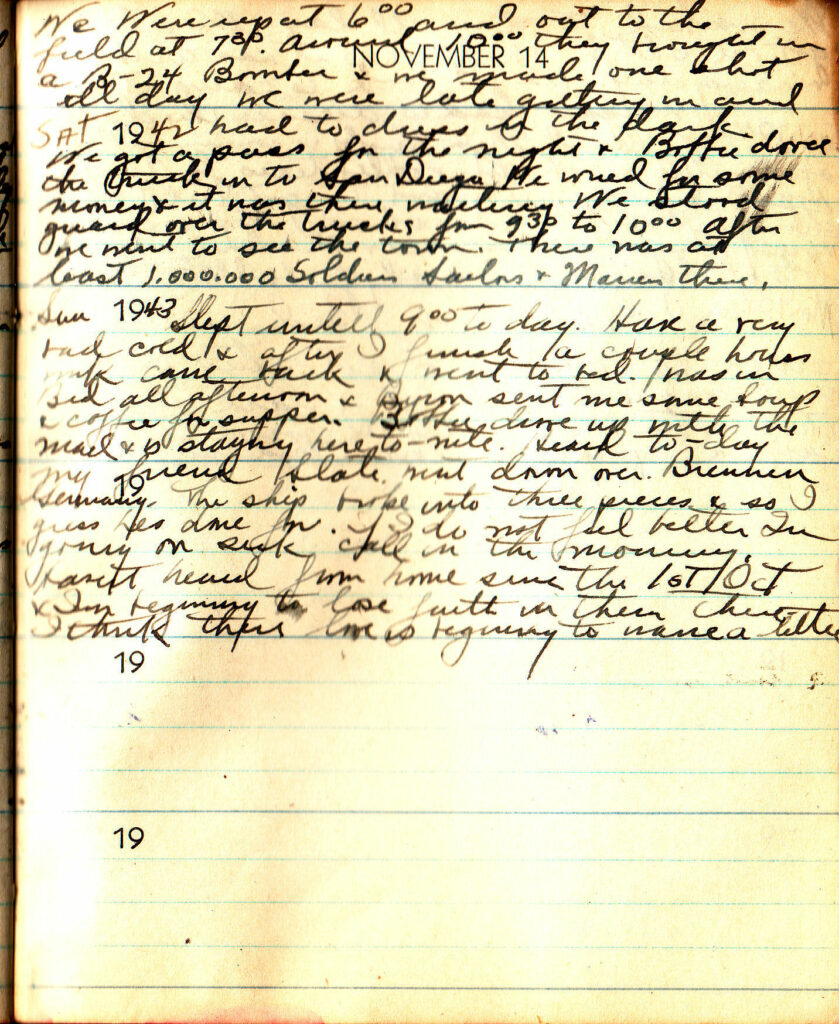 We were up at 6⁰⁰ and out to the
field at 7³⁰. Around 10⁰⁰ they brought in
NOVEMBER 14
a B-24 Bomber & we made one shot
all day we were late getting in and
SAT 1942 had to dress in the dark
We got a pass for the night & Bottie drove
the truck in to San Diego He wired for some
money & it was there waiting We stood
guard over the trucks from 9³⁰ to 10⁰⁰ after
we went to see the town. There was at
least 1.000.000 Soldiers Sailors & Marines there.
Sun 1943 Slept untill 9⁰⁰ to day. Have a very
bad cold & after I finish a couple hours
work came back & went to bed. was in
Bed all afternoon & Byron sent me some soup
& coffee for supper. Bottie drove up with the
mail & is staying here to-nite. Heard to-day
my friend Slate went down over Bremen
19
Germany. The ship broke into three pieces & so I
guess hes done for. If I do not feel better Im
going on sick call in the morning.
Havent heard from home since the 1st/Oct
& Im beginning to lose faith in them there
I think there love is beginning to wane a little
19
19